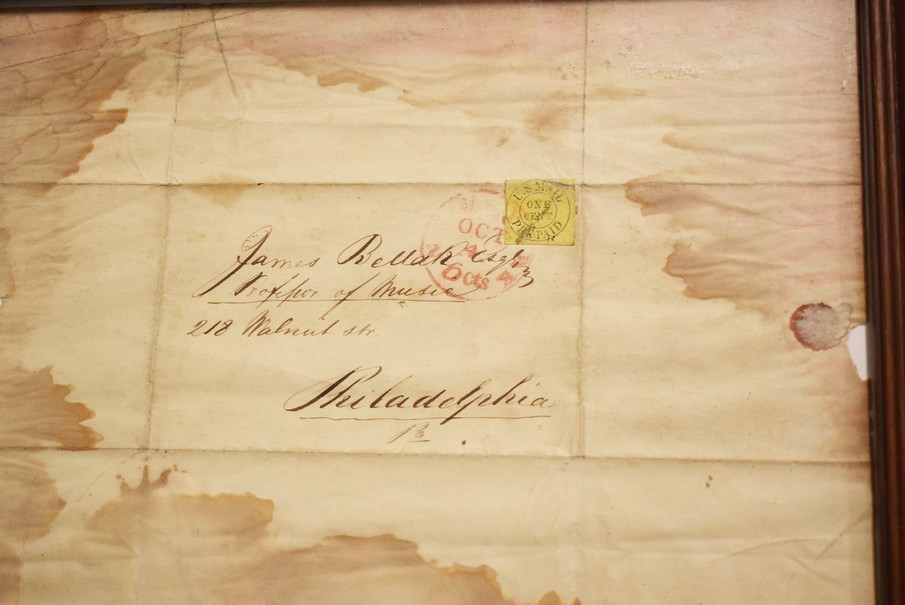 U.S. MAIL
ONE
CENT
PRE-PAID
OCT
4
6 cts
James Bellak Esqr
Professor of Music
218 Walnut str
Philadelphia
Pa